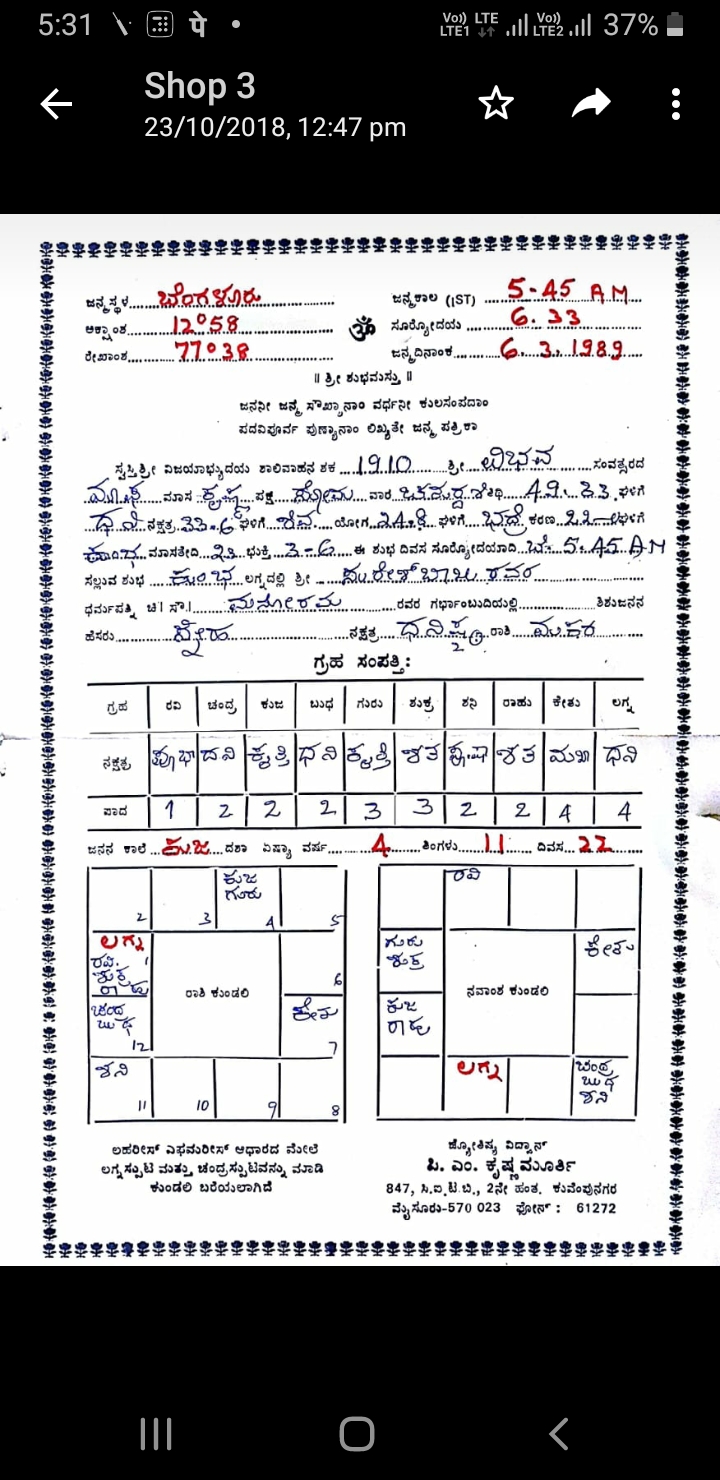 5:31 पे • Vo)) LTE LTE1 Vo)) LTE2 37%
Shop 3
23/10/2018, 12:47 pm
ಜನ್ಮಸ್ಥಳ ಬೆಂಗಳೂರು ಜನ್ಮಕಾಲ (IST) 5-45 A M
ಅಕ್ಷಾಂಶ 12°58 ಸೂರ್ಯೋದಯ 6. 33
ರೇಖಾಂಶ 77°38 ಜನ್ಮದಿನಾಂಕ 6. 3. 1989
ॐ
॥ ಶ್ರೀ ಶುಭಮಸ್ತು ॥
ಜನನೀ ಜನ್ಮ ಸೌಖ್ಯಾನಾಂ ವರ್ಧನೀ ಕುಲಸಂಪದಾಂ
ಪದವಿಪೂರ್ವ ಪುಣ್ಯಾನಾಂ ಲಿಖ್ಯತೇ ಜನ್ಮ ಪತ್ರಿಕಾ
ಸ್ವಸ್ತಿಶ್ರೀ ವಿಜಯಾಭ್ಯುದಯ ಶಾಲಿವಾಹನ ಶಕ 1910 ಶ್ರೀ ವಿಭವ ಸಂವತ್ಸರದ
ಮಾಘ ಮಾಸ ಕೃಷ್ಣ ಪಕ್ಷ ಸೋಮ ವಾರ ಚತುರ್ದಶಿ ತಿಥಿ 49. 33 ಘಳಿಗೆ
ಧನಿ ನಕ್ಷತ್ರ 33-6 ಘಳಿಗೆ ಶಿವ ಯೋಗ 24-8 ಘಳಿಗೆ ಭದ್ರೆ ಕರಣ 22 ಘಳಿಗೆ
ಕುಂಭ ಮಾಸತೇದಿ 23 ಭುಕ್ತಿ 3-6 ಈ ಶುಭ ದಿವಸ ಸೂರ್ಯೋದಯಾದಿ ಬೆ. 5.45 AM
ಸಲ್ಲುವ ಶುಭ ಕುಂಭ ಲಗ್ನದಲ್ಲಿ ಶ್ರೀ ಸುರೇಶ್ ಬಾಬು ರವರ
ಧರ್ಮಪತ್ನಿ ಚಿ। ಸೌ।। ಮನೋರಮ ರವರ ಗರ್ಭಾಂಬುದಿಯಲ್ಲಿ ಶಿಶುಜನನ
ಹೆಸರು ಸ್ನೇಹ ನಕ್ಷತ್ರ ಧನಿಷ್ಠ 2 ರಾಶಿ ಮಕರ
ಗ್ರಹ ಸಂಪತ್ತಿ:
ಗ್ರಹ ರವಿ ಚಂದ್ರ ಕುಜ ಬುಧ ಗುರು ಶುಕ್ರ ಶನಿ ರಾಹು ಕೇತು ಲಗ್ನ
ನಕ್ಷತ್ರ ಪೂಭಾ ದನಿ ಕೃತ್ತಿ ಧನಿ ಕೃತ್ತಿ ಶತ ಪೂಷಾ ಶತ ಮಖಾ ಧನಿ
ಪಾದ 1 2 2 2 3 3 2 2 4 4
ಜನನ ಕಾಲೆ ಕುಜ ದಶಾ ಏಷ್ಯಾ ವರ್ಷ 4 ತಿಂಗಳು 11 ದಿವಸ 22
2 3 ಕುಜ ಗುರು 4 5
ಲಗ್ನ ರವಿ. 1 ಶುಕ್ರ ರಾಹು
ರಾಶಿ ಕುಂಡಲಿ
6
ಚಂದ್ರ ಬುಧ 12
ಕೇತು 7
ಶನಿ 11 10 9 8
ರವಿ
ಗುರು ಶುಕ್ರ
ನವಾಂಶ ಕುಂಡಲಿ
ಕೇತು
ಕುಜ ರಾಹು
ಲಗ್ನ
ಚಂದ್ರ ಬುಧ ಶನಿ
ಲಹರೀಸ್ ಎಫಮರೀಸ್ ಆಧಾರದ ಮೇಲೆ
ಲಗ್ನಸ್ಪುಟ ಮತ್ತು ಚಂದ್ರಸ್ಪುಟವನ್ನು ಮಾಡಿ
ಕುಂಡಲಿ ಬರೆಯಲಾಗಿದೆ
ಜ್ಯೋತಿಷ್ಯ ವಿದ್ವಾನ್
ಪಿ. ಎಂ. ಕೃಷ್ಣಮೂರ್ತಿ
847, ಸಿ.ಐ.ಟಿ.ಬಿ., 2ನೇ ಹಂತ. ಕುವೆಂಪುನಗರ
ಮೈಸೂರು-570 023 ಫೋನ್ : 61272